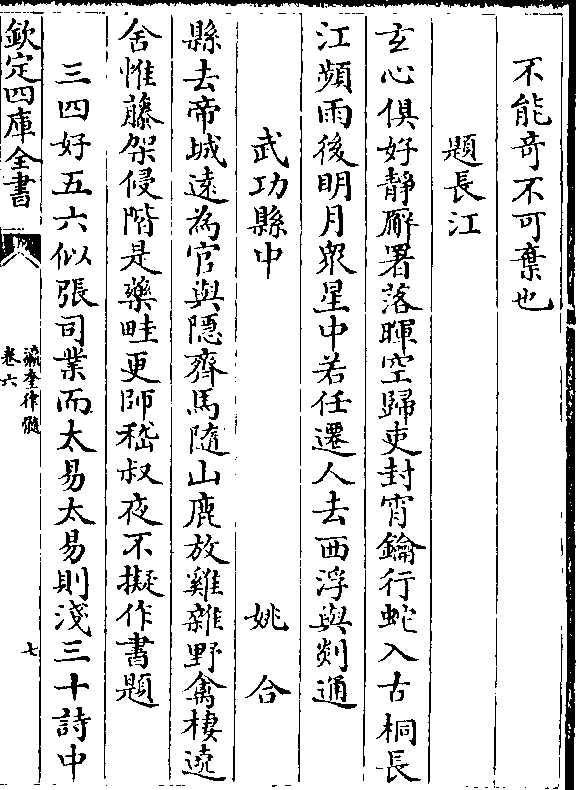 不能奇不可棄也
題長江
玄心俱好靜廨署落暉空歸吏封宵鑰行蛇入古桐長
江頻雨後明月衆星中若任遷人去西浮與剡通
武功縣中　姚合
縣去帝城遠為官與隱齊馬隨山鹿放雞雜野禽棲遶
舍惟藤架侵階是藥畦更師嵇叔夜不擬作書題
三四好五六似張司業而太易太易則淺三十詩中
欽定四庫全書
瀛奎律髓
卷六
七